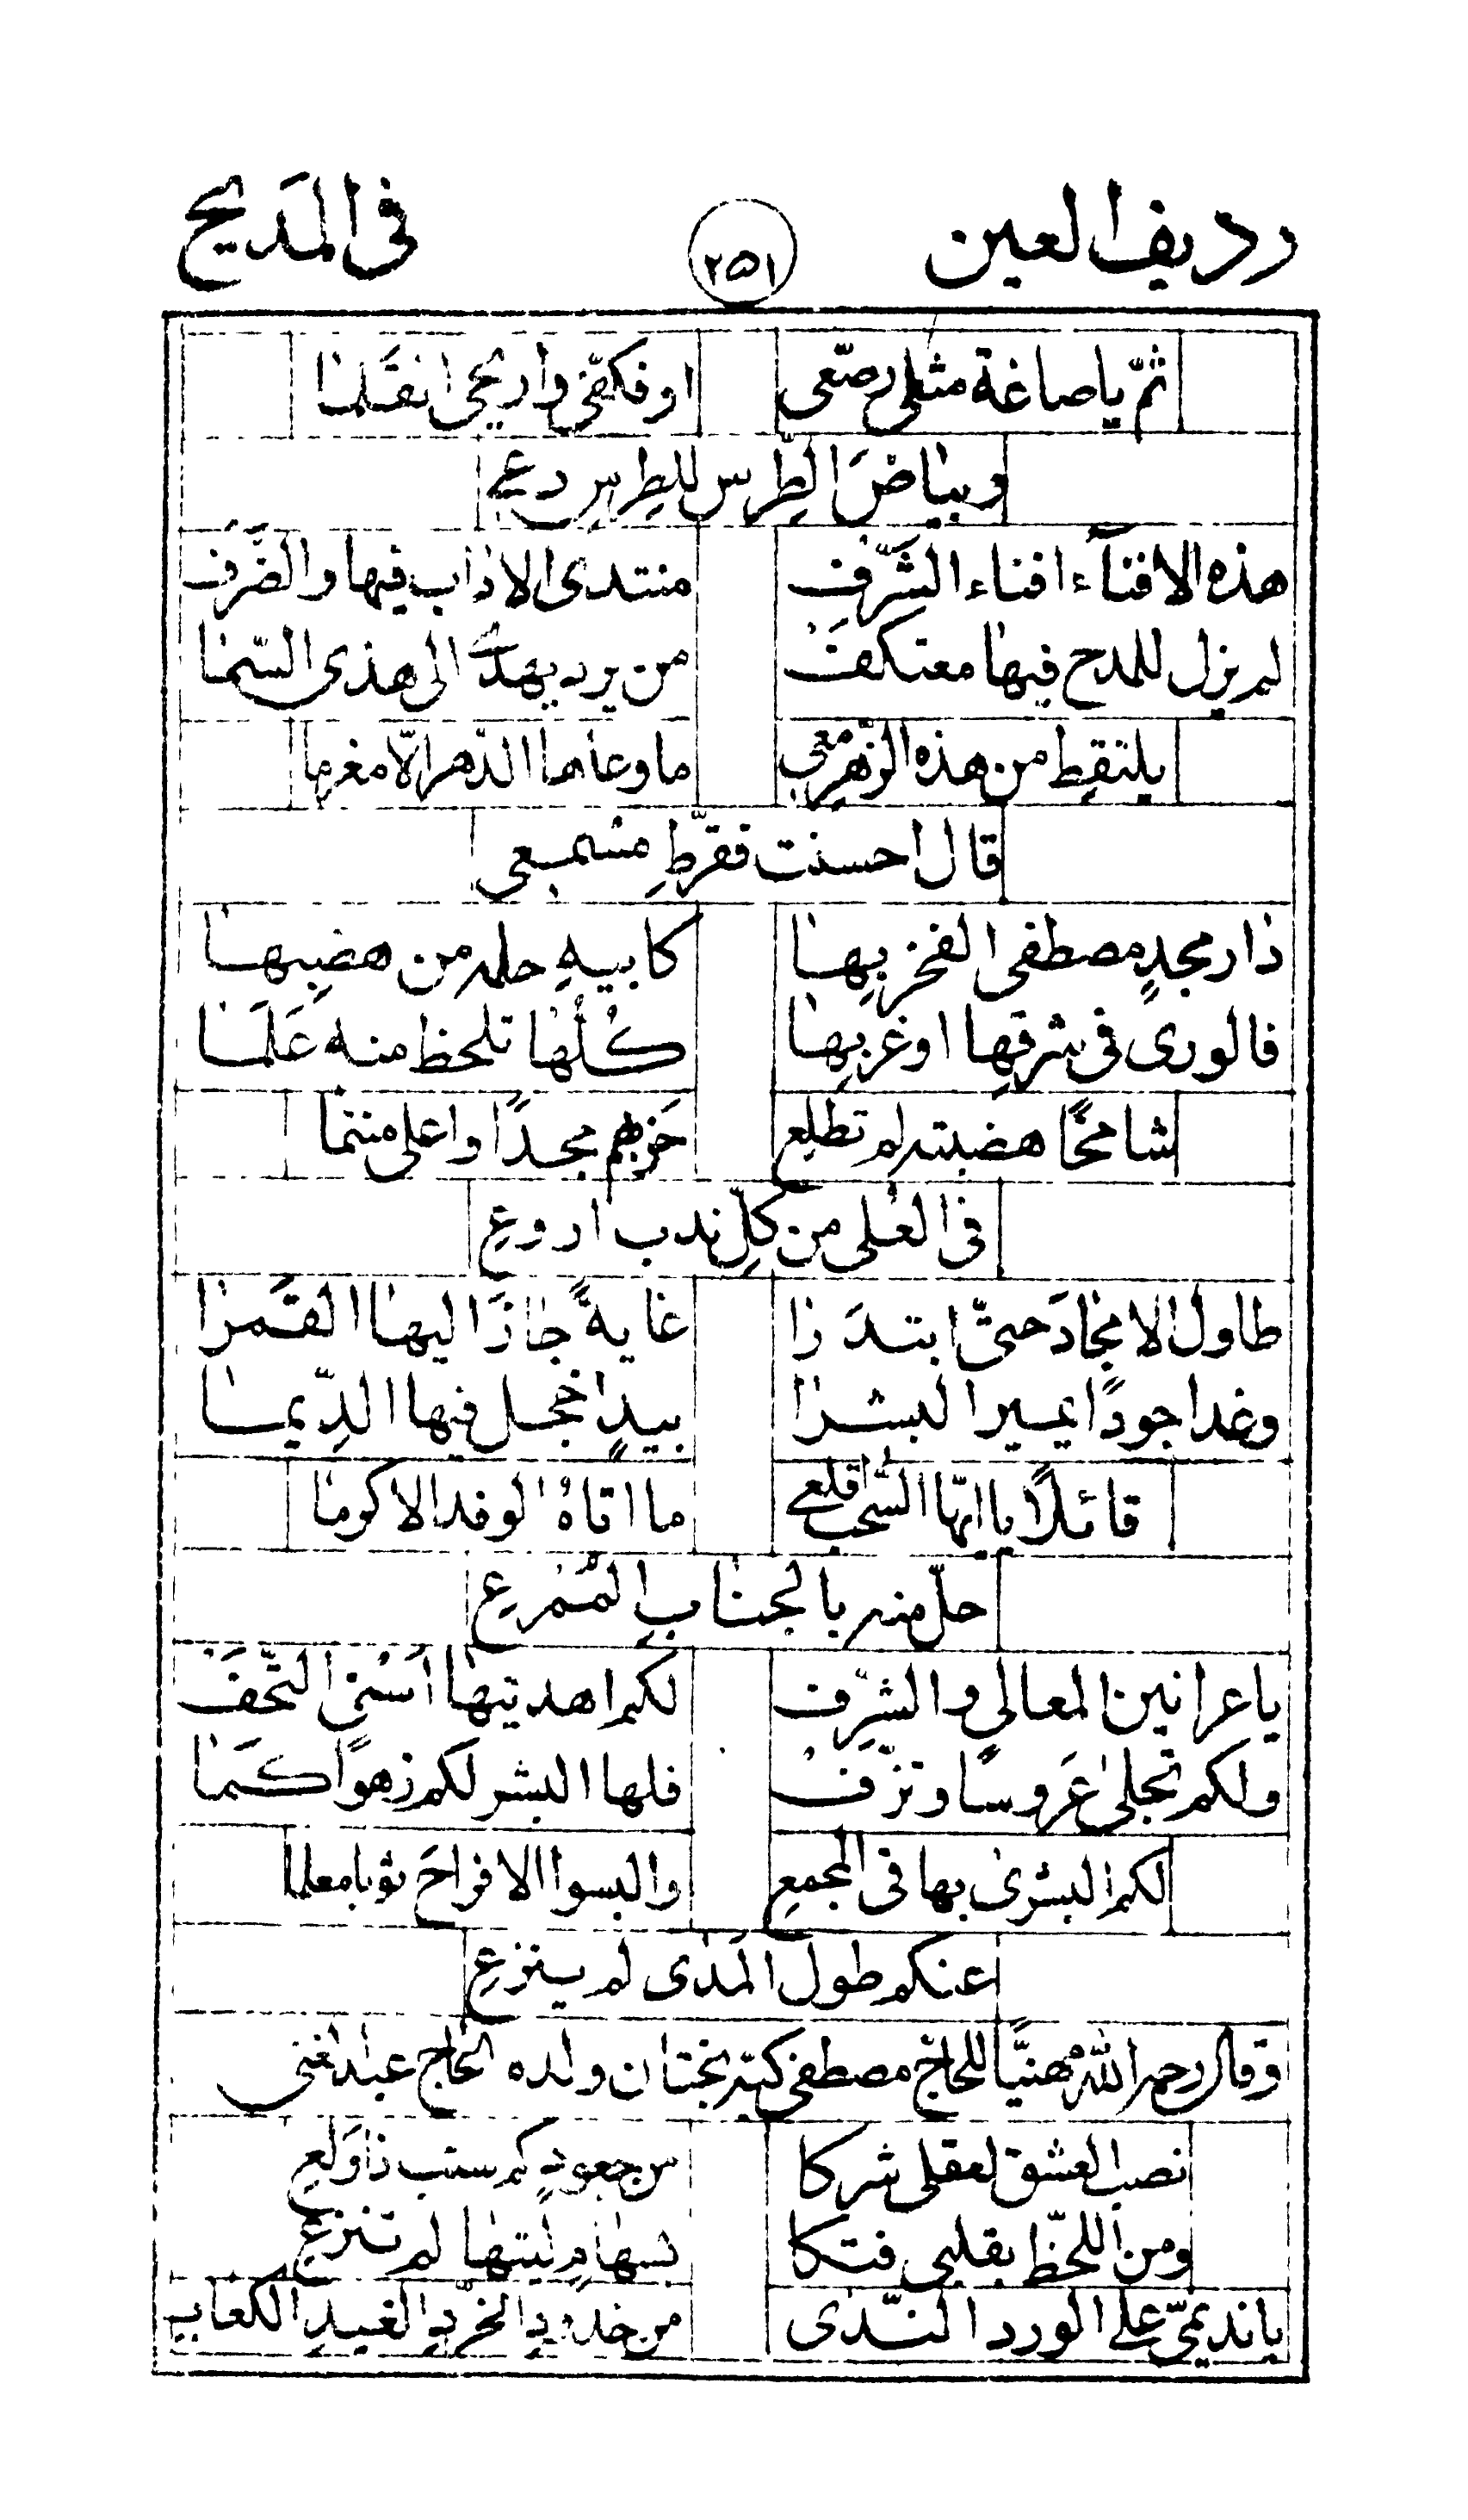 رديف العين ٢٥١ في المديح
ثمّ يا صاغة مثلي رصّعي اوفكفّي واريحي انفلنا
وبياضَ الطِّرس للطِرسِ دعي
هذه الافناء افناء الشَّرَفِ منتدى الاداب فيها والطَّرَف
لم يزل للمدح فيها معتكف من يرد يهدى الى هذى السّمٰا
يلتقِط من هذه الزُّهرِ معي ما وعاها الدّهر الّا مغرما
قال احسنت فقرّطِ مسمعي
دٰار مجدٍ مصطفى الفخر بِهٰا كابيهِ حلّه من هضبِهٰا
فالورى في شرقِها اوغربِهٰا كُلُّهٰا تلحظ منه عَلَمٰا
شامخًا هضبته لم تطلع خيرهم مجدًا واعلى منتمٰا
في العُلى من كلِّ ندب اروعِ
طاول الامجٰادَ حتّى ابتدَرٰا غٰايةً جٰازَ اليهٰا القَمرٰا
وغدا جودًا يمير البشرٰا بيدٍ اخجل فيها الدِّيمٰا
قائلًا يا ايّها السُّحب اقلعي ما اتاهُ الوفد الا كرمٰا
حلّ منه بالجنٰابِ المُمرعِ
يا عرانين المعالي والشرَّف لكم اهديتهٰا اَسْنى التُّحَفْ
ولكم تجلىٰ عَروسًا وتزّفْ فلها البشر لكم زهوًا كَمٰا
لكم البشرىٰ بها في المجمعِ والبسوا الافراحَ ثوبا معلما
عنكم طول المَدٰى لم ينزعِ
وقال رحمه الله مهنيًّا للحاج مصطفى كبّه بختان ولده الحاج عبد الغني
نصب العشق لعقلى شركا من جعودٍ كم سبت ذا وَلَعِ
ومن اللّحظ بقلبي فتكا بسهٰامٍ ليتهٰا لم تنزعِ
يا نديميّ على الورد النَّدٰى من خدودِ الخرّدِ الغيدِ الكعٰاب